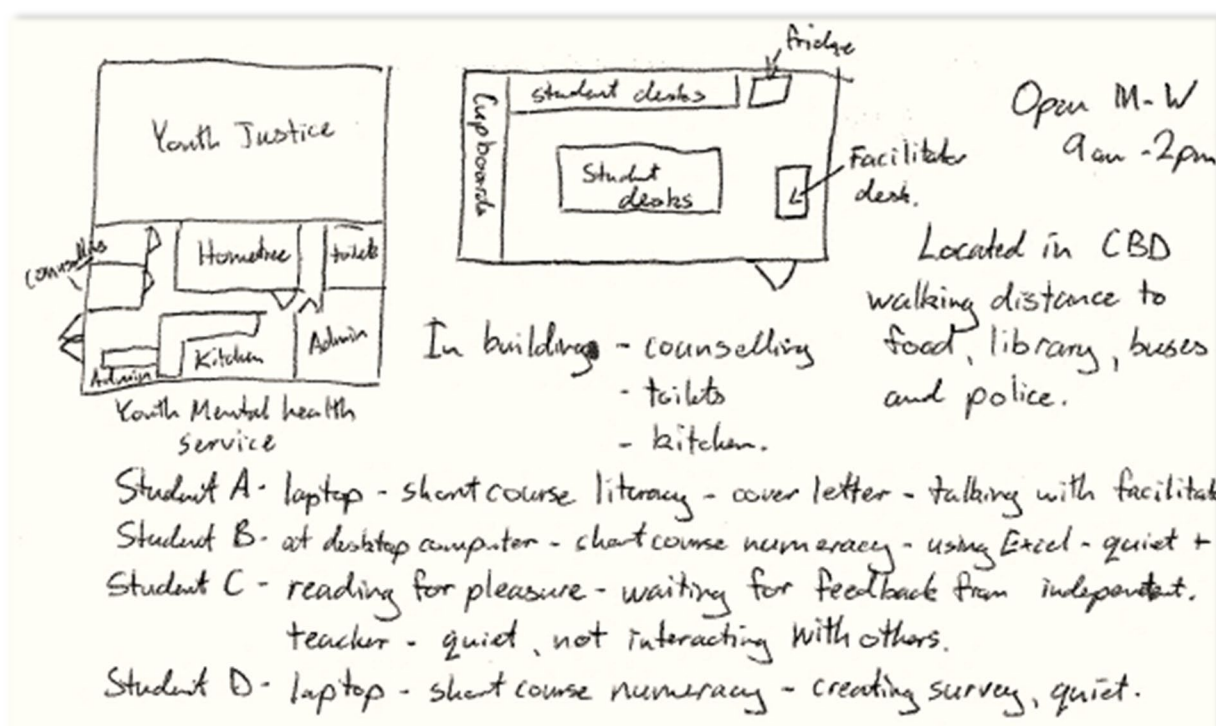 Youth Justice
Counselling
Hometree
toilets
Admin
Kitchen
Admin
Youth Mental health
service
fridge
Cupboards
student desks
Student
desks
Facilitator
desk.
Open M-W
9am - 2pm
Located in CBD
walking distance to
food, library, buses
and police.
In building - counselling
- toilets
- kitchen.
Student A - laptop - short course literacy - cover letter - talking with facilitat
Student B - at desktop computer - short course numeracy - using Excel - quiet +
Student C - reading for pleasure - waiting for feedback from independent.
teacher - quiet, not interacting with others.
Student D - laptop - short course numeracy - creating survey, quiet.